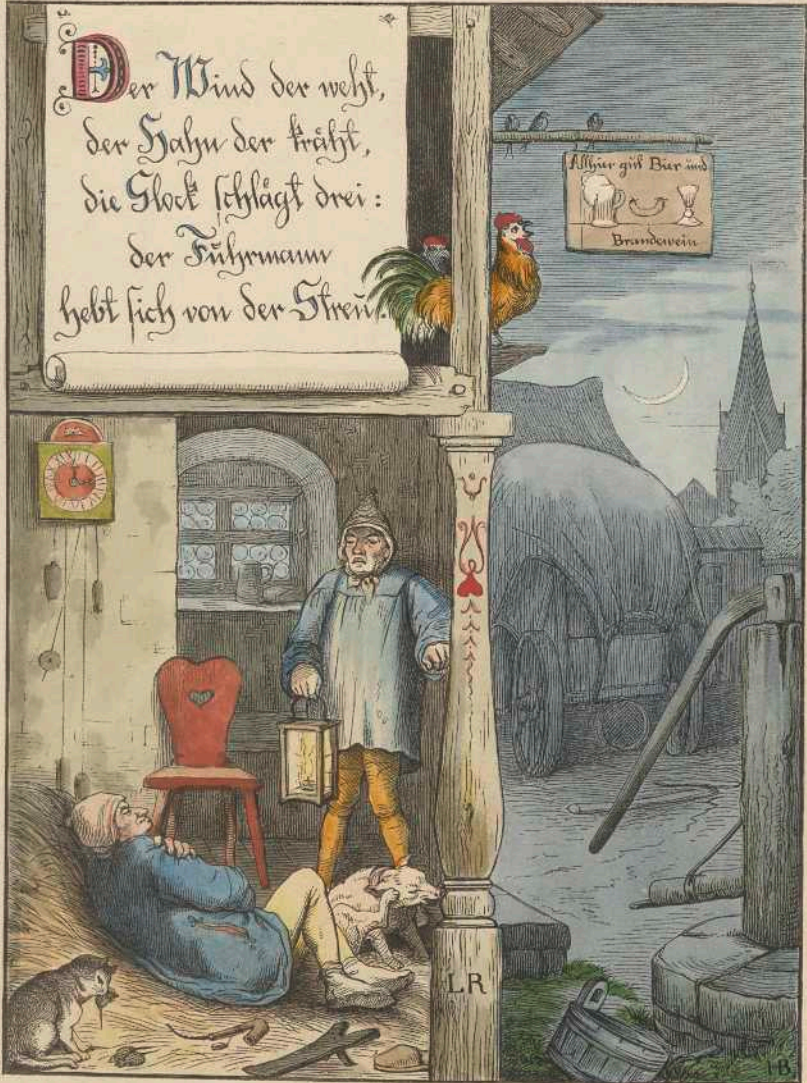 Der Wind der weht,
der Hahn der kräht,
die Glock schlägt drei:
der Fuhrmann
hebt sich von der Streu.
Allhier giebt Bier und
Brandewein
LR
HB